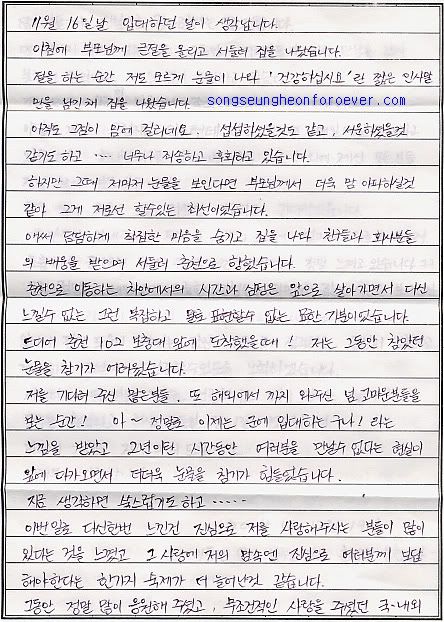 11월 16일날 입대하던 날이 생각납니다.
아침에 부모님께 큰절을 올리고 서둘러 집을 나왔습니다.
절을 하는 순간 저도 모르게 눈물이 나와 '건강하십시요' 란 짧은 인사말
만을 남긴채 집을 나왔습니다. songseungheonforoever.com
아직도 그점이 맘에 걸리네요. 섭섭하셨을것도 같고, 서운하셨을것
같기도 하고 .... 너무나 죄송하고 후회하고 있습니다.
하지만 그때 저마저 눈물을 보인다면 부모님께서 더욱 맘 아파하실것
같아 그게 저로선 할수있는 최선이였습니다.
애써 담담하게 착찹한 마음을 숨기고 집을 나와 친구들과 회사분들
의 배웅을 받으며 서둘러 춘천으로 향했습니다.
춘천으로 이동하는 차안에서의 시간과 심정은 앞으로 살아가면서 다신
느낄수 없는 그런 복잡하고 말로 표현할수 없는 묘한 기분이였습니다.
드디어 춘천 102 보충대 앞에 도착했을때! 저는 그동안 참았던
눈물을 참기가 어려웠습니다.
저를 기다려 주신 많은분들, 또 해외에서 까지 와주신 넘 고마운분들을
보는 순간! 아~ 정말로 이제는 군에 입대하는구나! 라는
느낌을 받았고 2년이란 시간동안 여러분을 만날수 없다는 현실이
앞에 다가오면서 더더욱 눈물을 참기가 힘들었습니다.
지금 생각하면 쑥스럽기도 하고 ......
이번일로 다신한번 느낀건 진심으로 저를 사랑해주시는 분들이 많이
있다는 것을 느꼈고 그 사랑에 저의 맘속엔 진심으로 여러분께 보답
해야한다는 한가지 숙제가 더 늘어난것 같습니다.
그동안 정말 많이 응원해 주셨고, 무조건적인 사랑을 주셨던 국·내외